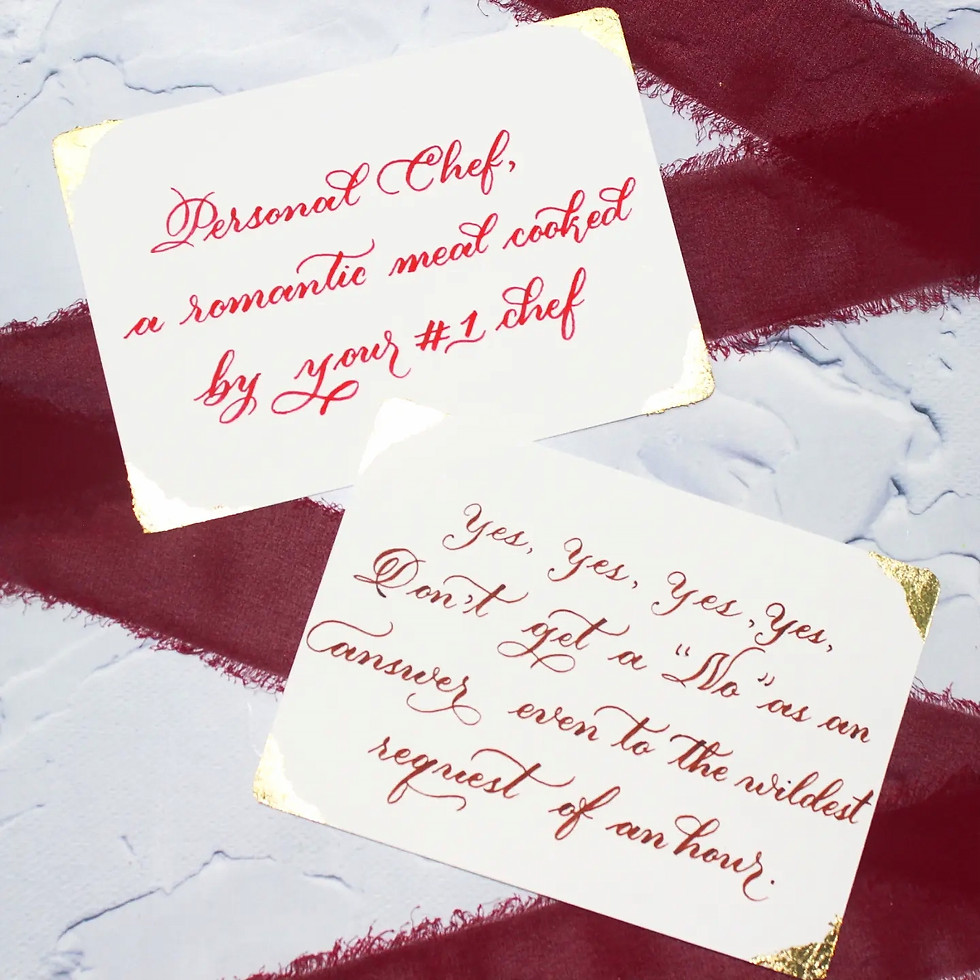 Personal Chef,
a romantic meal cooked
by your #1 chef
Yes, Yes, Yes, Yes,
Don't get a "No" as an
answer even to the wildest
request of an hour.